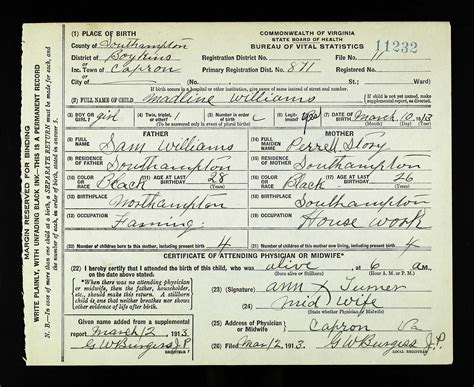 (1) PLACE OF BIRTH
COMMONWEALTH OF VIRGINIA
STATE BOARD OF HEALTH
BUREAU OF VITAL STATISTICS
11232
County of Southampton
District of Boykins
Inc. Town of Capron
Registration District No.
File No. 11
Primary Registration Dist. No. 871
Registered No.
City of (No. St. Ward)
If birth occurs in a hospital or other institution, give name of same
(2) FULL NAME OF CHILD Madline Williams
If child is not yet named, make supplemental report
(3) BOY or GIRL girl
(4) Twin, triplet or other?
(5) Number in order of birth
(To be answered only in event of plural births)
(6) Legitimate? yes
(7) DATE OF BIRTH March 10, 1913
(Month) (Day) (Year)
FATHER
MOTHER
(8) FULL NAME Sam Williams
Perrell Story
(9) RESIDENCE OF FATHER Southampton
RESIDENCE OF MOTHER Southampton
(10) COLOR OR RACE Black
(11) AGE AT LAST BIRTHDAY 28 (Years)
(16) COLOR OR RACE Black
(17) AGE AT LAST BIRTHDAY 26 (Years)
(12) BIRTHPLACE Northampton
(18) BIRTHPLACE Southampton
(13) OCCUPATION Faming
(19) OCCUPATION House work
(20) Number of children born to this mother, including present birth 4
(21) Number of children of this mother now living, including present birth 4
CERTIFICATE OF ATTENDING PHYSICIAN OR MIDWIFE
(22) I hereby certify that I attended the birth of this child, who was alive at 6 a M.
(Born alive or stillborn) (Hour A.M. or P.M.)
*When there was no attending physician or midwife, then the father, householder, etc., should make this return. A stillborn child is one that neither breathes nor shows other evidence of life after birth.
(23) (Signature) Ann X Turner
mid wife
Given name added from a supplemental report March 12, 1913
G W Burgess J.P.
REGISTRAR
(25) Address of Physician or Midwife Capron Va
(26) Filed Mar 12, 1913. G W Burgess J.P.
MARGIN RESERVED FOR BINDING
WRITE PLAINLY, WITH UNFADING BLACK INK—THIS IS A PERMANENT RECORD
N. B.—In case of more than one child at a birth, a SEPARATE RETURN must be made for each, and the number of each, in order of birth, stated in answer 5.